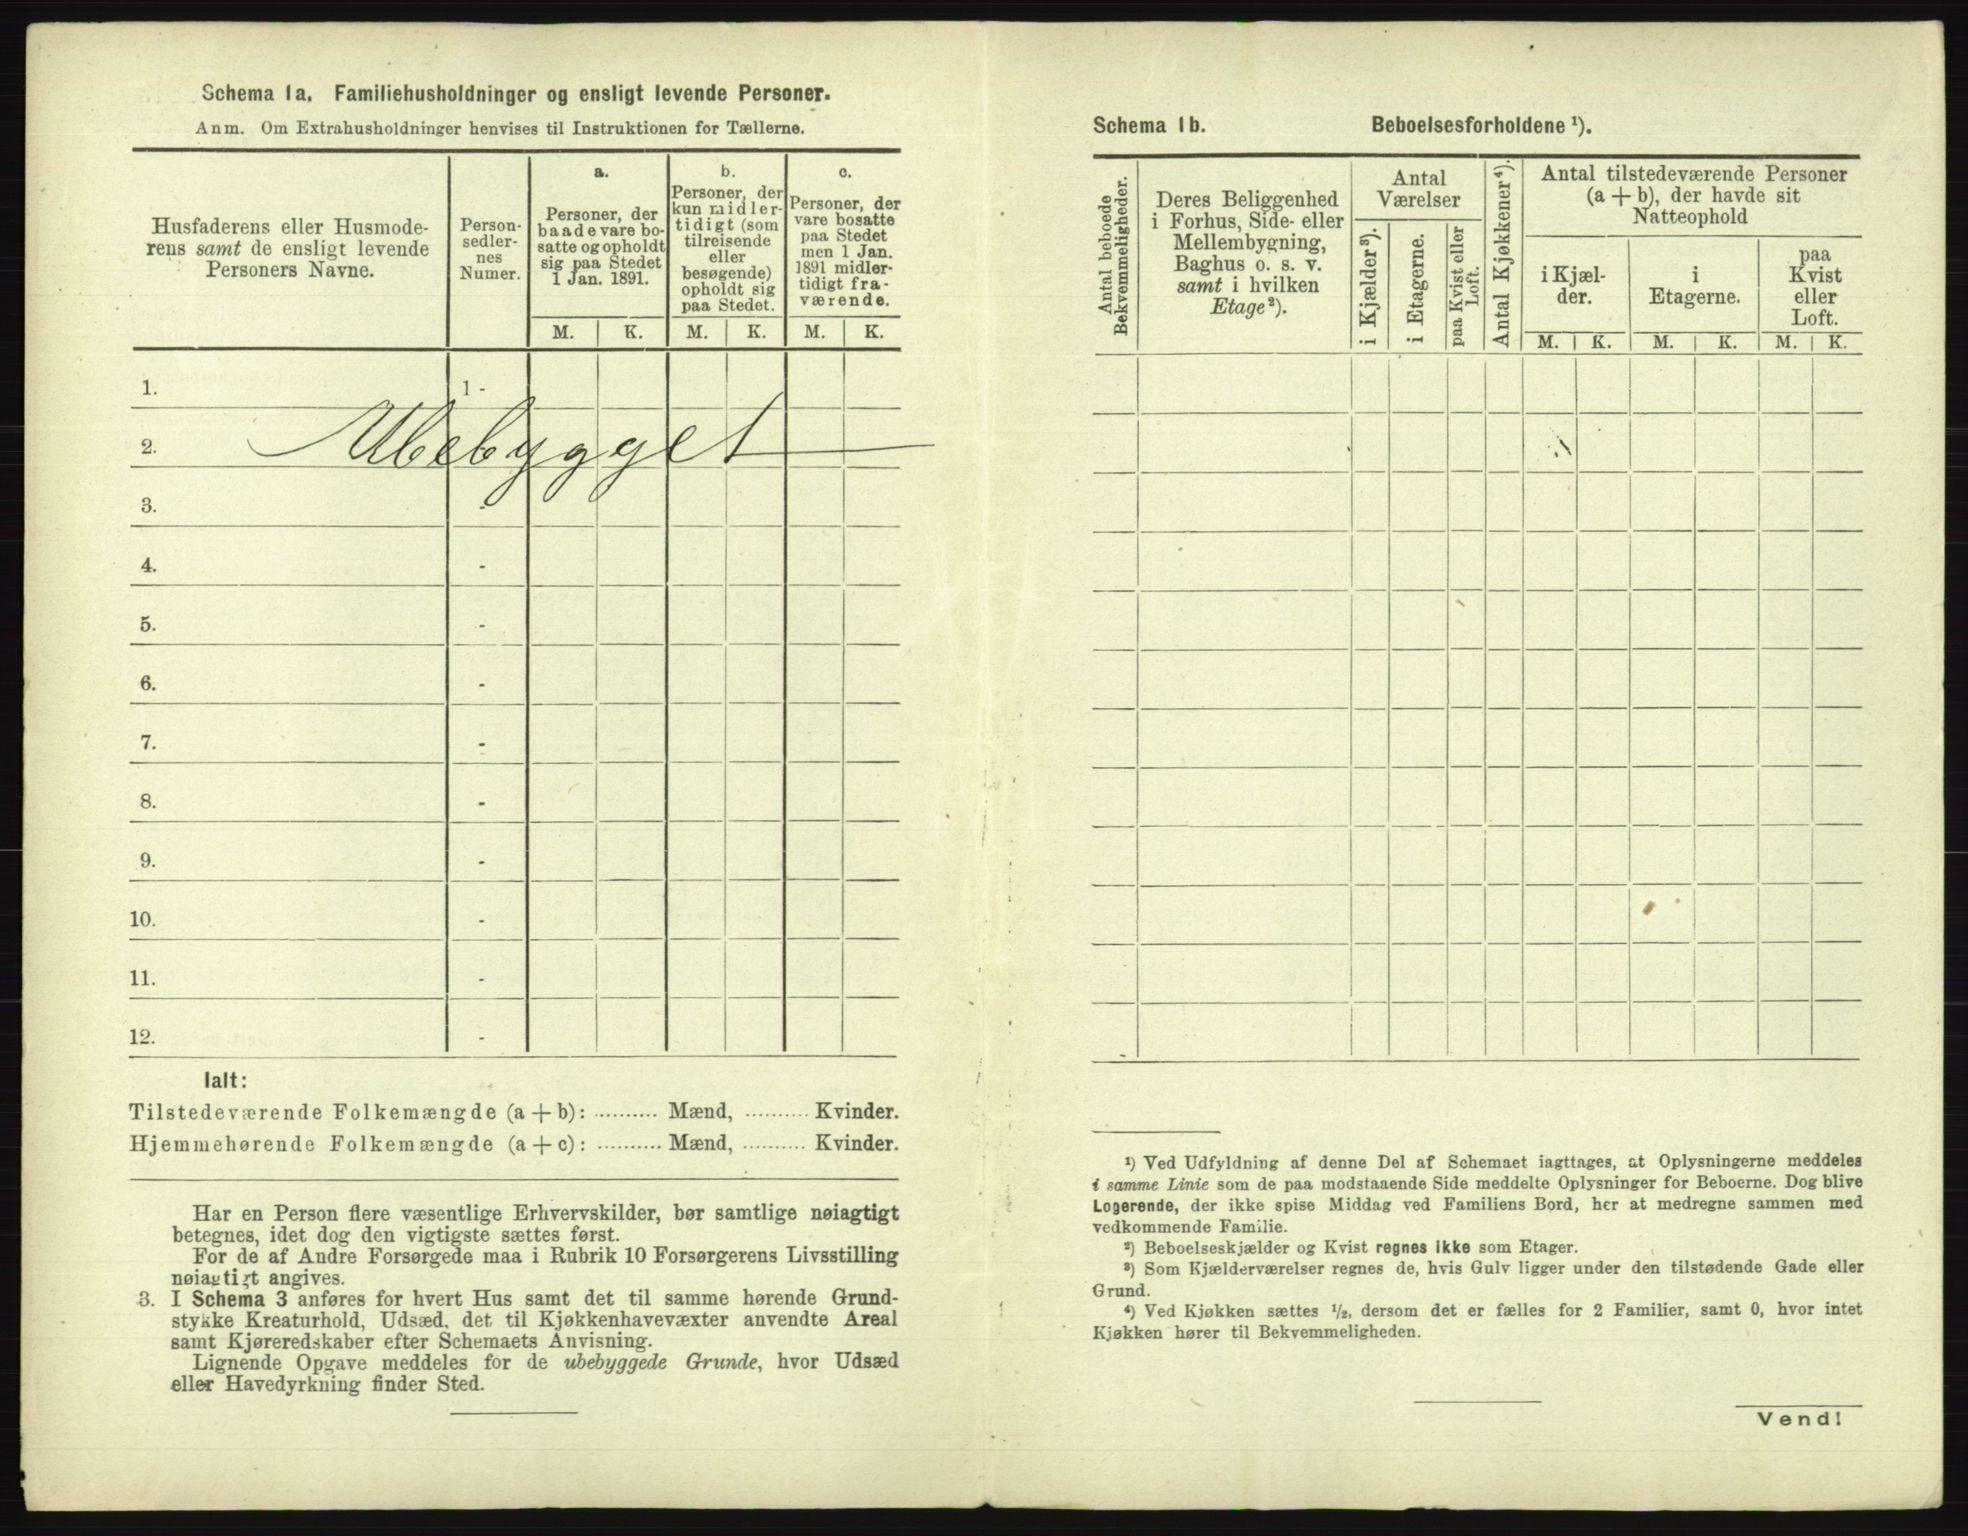 Schema 1a. Familiehusholdninger og ensligt levende Personer.
Anm. Om Extrahusholdninger henvises til Instruktionen for Tællerne.
Husfaderens eller Husmode-
rens samt de ensligt levende
Personers Navne.
Person-
sedler-
nes
Numer.
a.
Personer, der
baade vare bo-
satte og opholdt
sig paa Stedet
1 Jan. 1891.
b.
Personer, der
kun midler-
tidigt (som
tilreisende
eller
besøgende)
opholdt sig
paa Stedet.
c.
Personer, der
vare bosatte
paa Stedet
men 1 Jan.
1891 midler-
tidigt fra-
værende.
M. K. M. K. M. K.
1. 1 -
2. Ubebygget
3. -
4. -
5. -
6. -
7. -
8. -
9. -
10. -
11. -
12. -
Ialt:
Tilstedeværende Folkemængde (a + b): .......... Mænd, .......... Kvinder.
Hjemmehørende Folkemængde (a + c): .......... Mænd, .......... Kvinder.
Har en Person flere væsentlige Erhvervskilder, bør samtlige nøiagtigt
betegnes, idet dog den vigtigste sættes først.
For de af Andre Forsørgede maa i Rubrik 10 Forsørgerens Livsstilling
nøiagtigt angives.
3. I Schema 3 anføres for hvert Hus samt det til samme hørende Grund-
stykke Kreaturhold, Udsæd, det til Kjøkkenhavevæxter anvendte Areal
samt Kjøreredskaber efter Schemaets Anvisning.
Lignende Opgave meddeles for de ubebyggede Grunde, hvor Udsæd
eller Havedyrkning finder Sted.
Schema 1b. Beboelsesforholdene ¹).
Antal beboede
Bekvemmeligheder.
Deres Beliggenhed
i Forhus, Side- eller
Mellembygning,
Baghus o. s. v.
samt i hvilken
Etage²).
Antal
Værelser
i Kjælder³).
i Etagerne.
paa Kvist eller
Loft.
Antal Kjøkkener⁴).
Antal tilstedeværende Personer
(a + b), der havde sit
Natteophold
i Kjæl-
der.
i
Etagerne.
paa
Kvist
eller
Loft.
M. K. M. K. M. K.
¹) Ved Udfyldning af denne Del af Schemaet iagttages, at Oplysningerne meddeles
i samme Linie som de paa modstaaende Side meddelte Oplysninger for Beboerne. Dog blive
Logerende, der ikke spise Middag ved Familiens Bord, her at medregne sammen med
vedkommende Familie.
²) Beboelseskjælder og Kvist regnes ikke som Etager.
³) Som Kjælderværelser regnes de, hvis Gulv ligger under den tilstødende Gade eller
Grund.
⁴) Ved Kjøkken sættes ½, dersom det er fælles for 2 Familier, samt 0, hvor intet
Kjøkken hører til Bekvemmeligheden.
Vend!